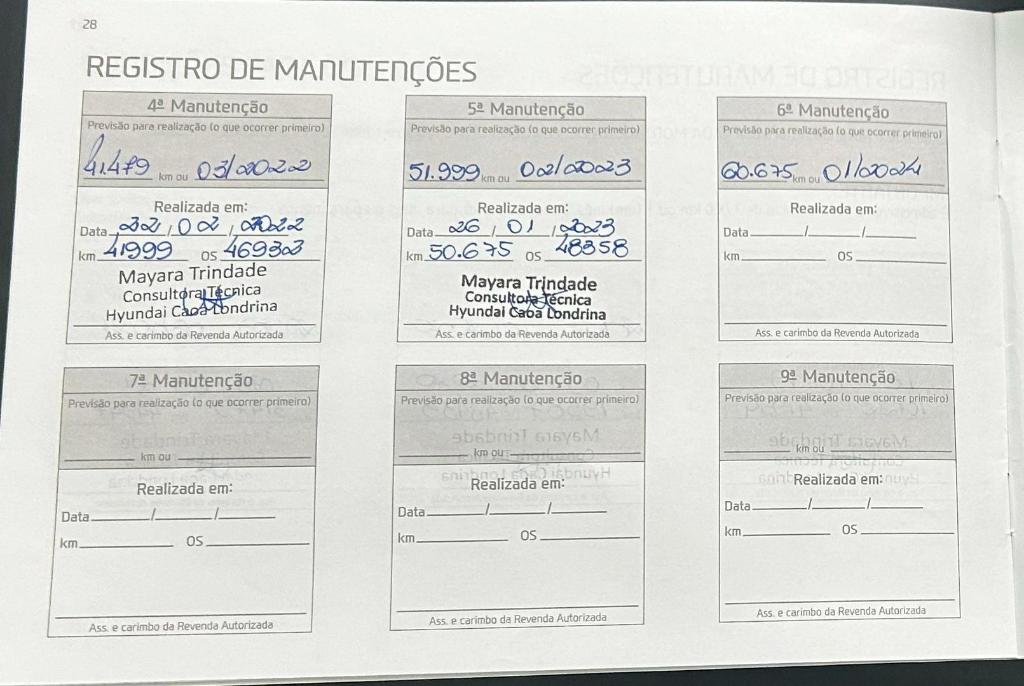 28
REGISTRO DE MANUTENÇÕES
4ª Manutenção
Previsão para realização (o que ocorrer primeiro)
41.479 km ou 03/2022
Realizada em:
Data 22 / 02 / 2022
km 41999 OS 469303
Mayara Trindade
Consultora Técnica
Hyundai Caoa Londrina
Ass. e carimbo da Revenda Autorizada
5ª Manutenção
Previsão para realização (o que ocorrer primeiro)
51.999 km ou 02/2023
Realizada em:
Data 26 / 01 / 2023
km 50.675 OS 48358
Mayara Trindade
Consultora Técnica
Hyundai Caoa Londrina
Ass. e carimbo da Revenda Autorizada
6ª Manutenção
Previsão para realização (o que ocorrer primeiro)
60.675 km ou 01/2024
Realizada em:
Data / /
km OS
Ass. e carimbo da Revenda Autorizada
7ª Manutenção
Previsão para realização (o que ocorrer primeiro)
km ou
Realizada em:
Data / /
km OS
Ass. e carimbo da Revenda Autorizada
8ª Manutenção
Previsão para realização (o que ocorrer primeiro)
km ou
Realizada em:
Data / /
km OS
Ass. e carimbo da Revenda Autorizada
9ª Manutenção
Previsão para realização (o que ocorrer primeiro)
km ou
Realizada em:
Data / /
km OS
Ass. e carimbo da Revenda Autorizada